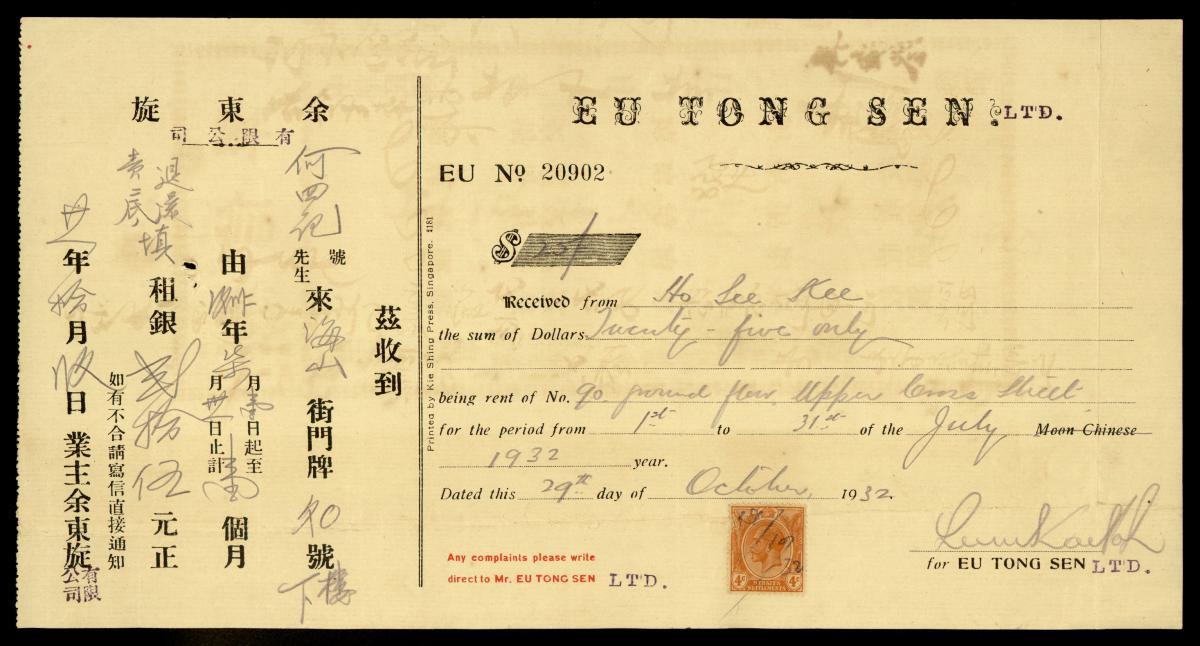 余東旋
有限公司
茲收到
何四記
號
先生
來海山街門牌90號
樓下
由
年
月
日起至
月卅一日止計
個月
退還
租銀貳拾伍元正
如有不合請寫信直接通知
年拾月
日業主余東旋
有限公司
EU TONG SEN. LTD.
EU No 20902
$ 25/
Received from Ho See Kee
the sum of Dollars Twenty-five only
being rent of No. 90 ground floor Upper Cross Street
for the period from 1st to 31st of the July Moon Chinese
1932 year.
Dated this 29th day of October, 1932.
Any complaints please write
direct to Mr. EU TONG SEN LTD.
4c 4c
STRAITS
SETTLEMENTS
for EU TONG SEN LTD.
Printed by Kie Shing Press, Singapore. 1181